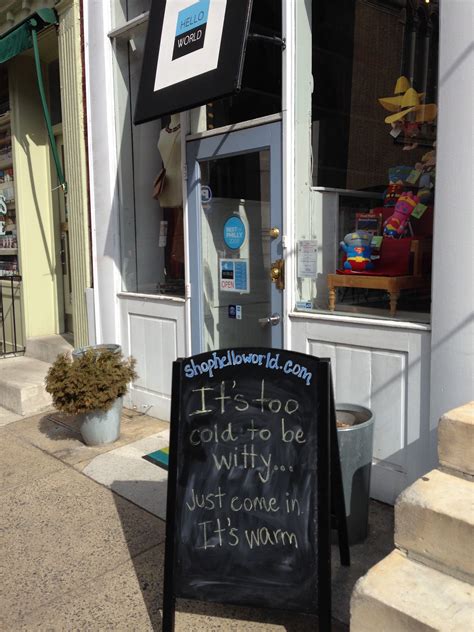 HELLO
WORLD
BEST OF
PHILLY
OPEN
shophelloworld.com
It's too
cold to be
witty...
Just come in
It's warm